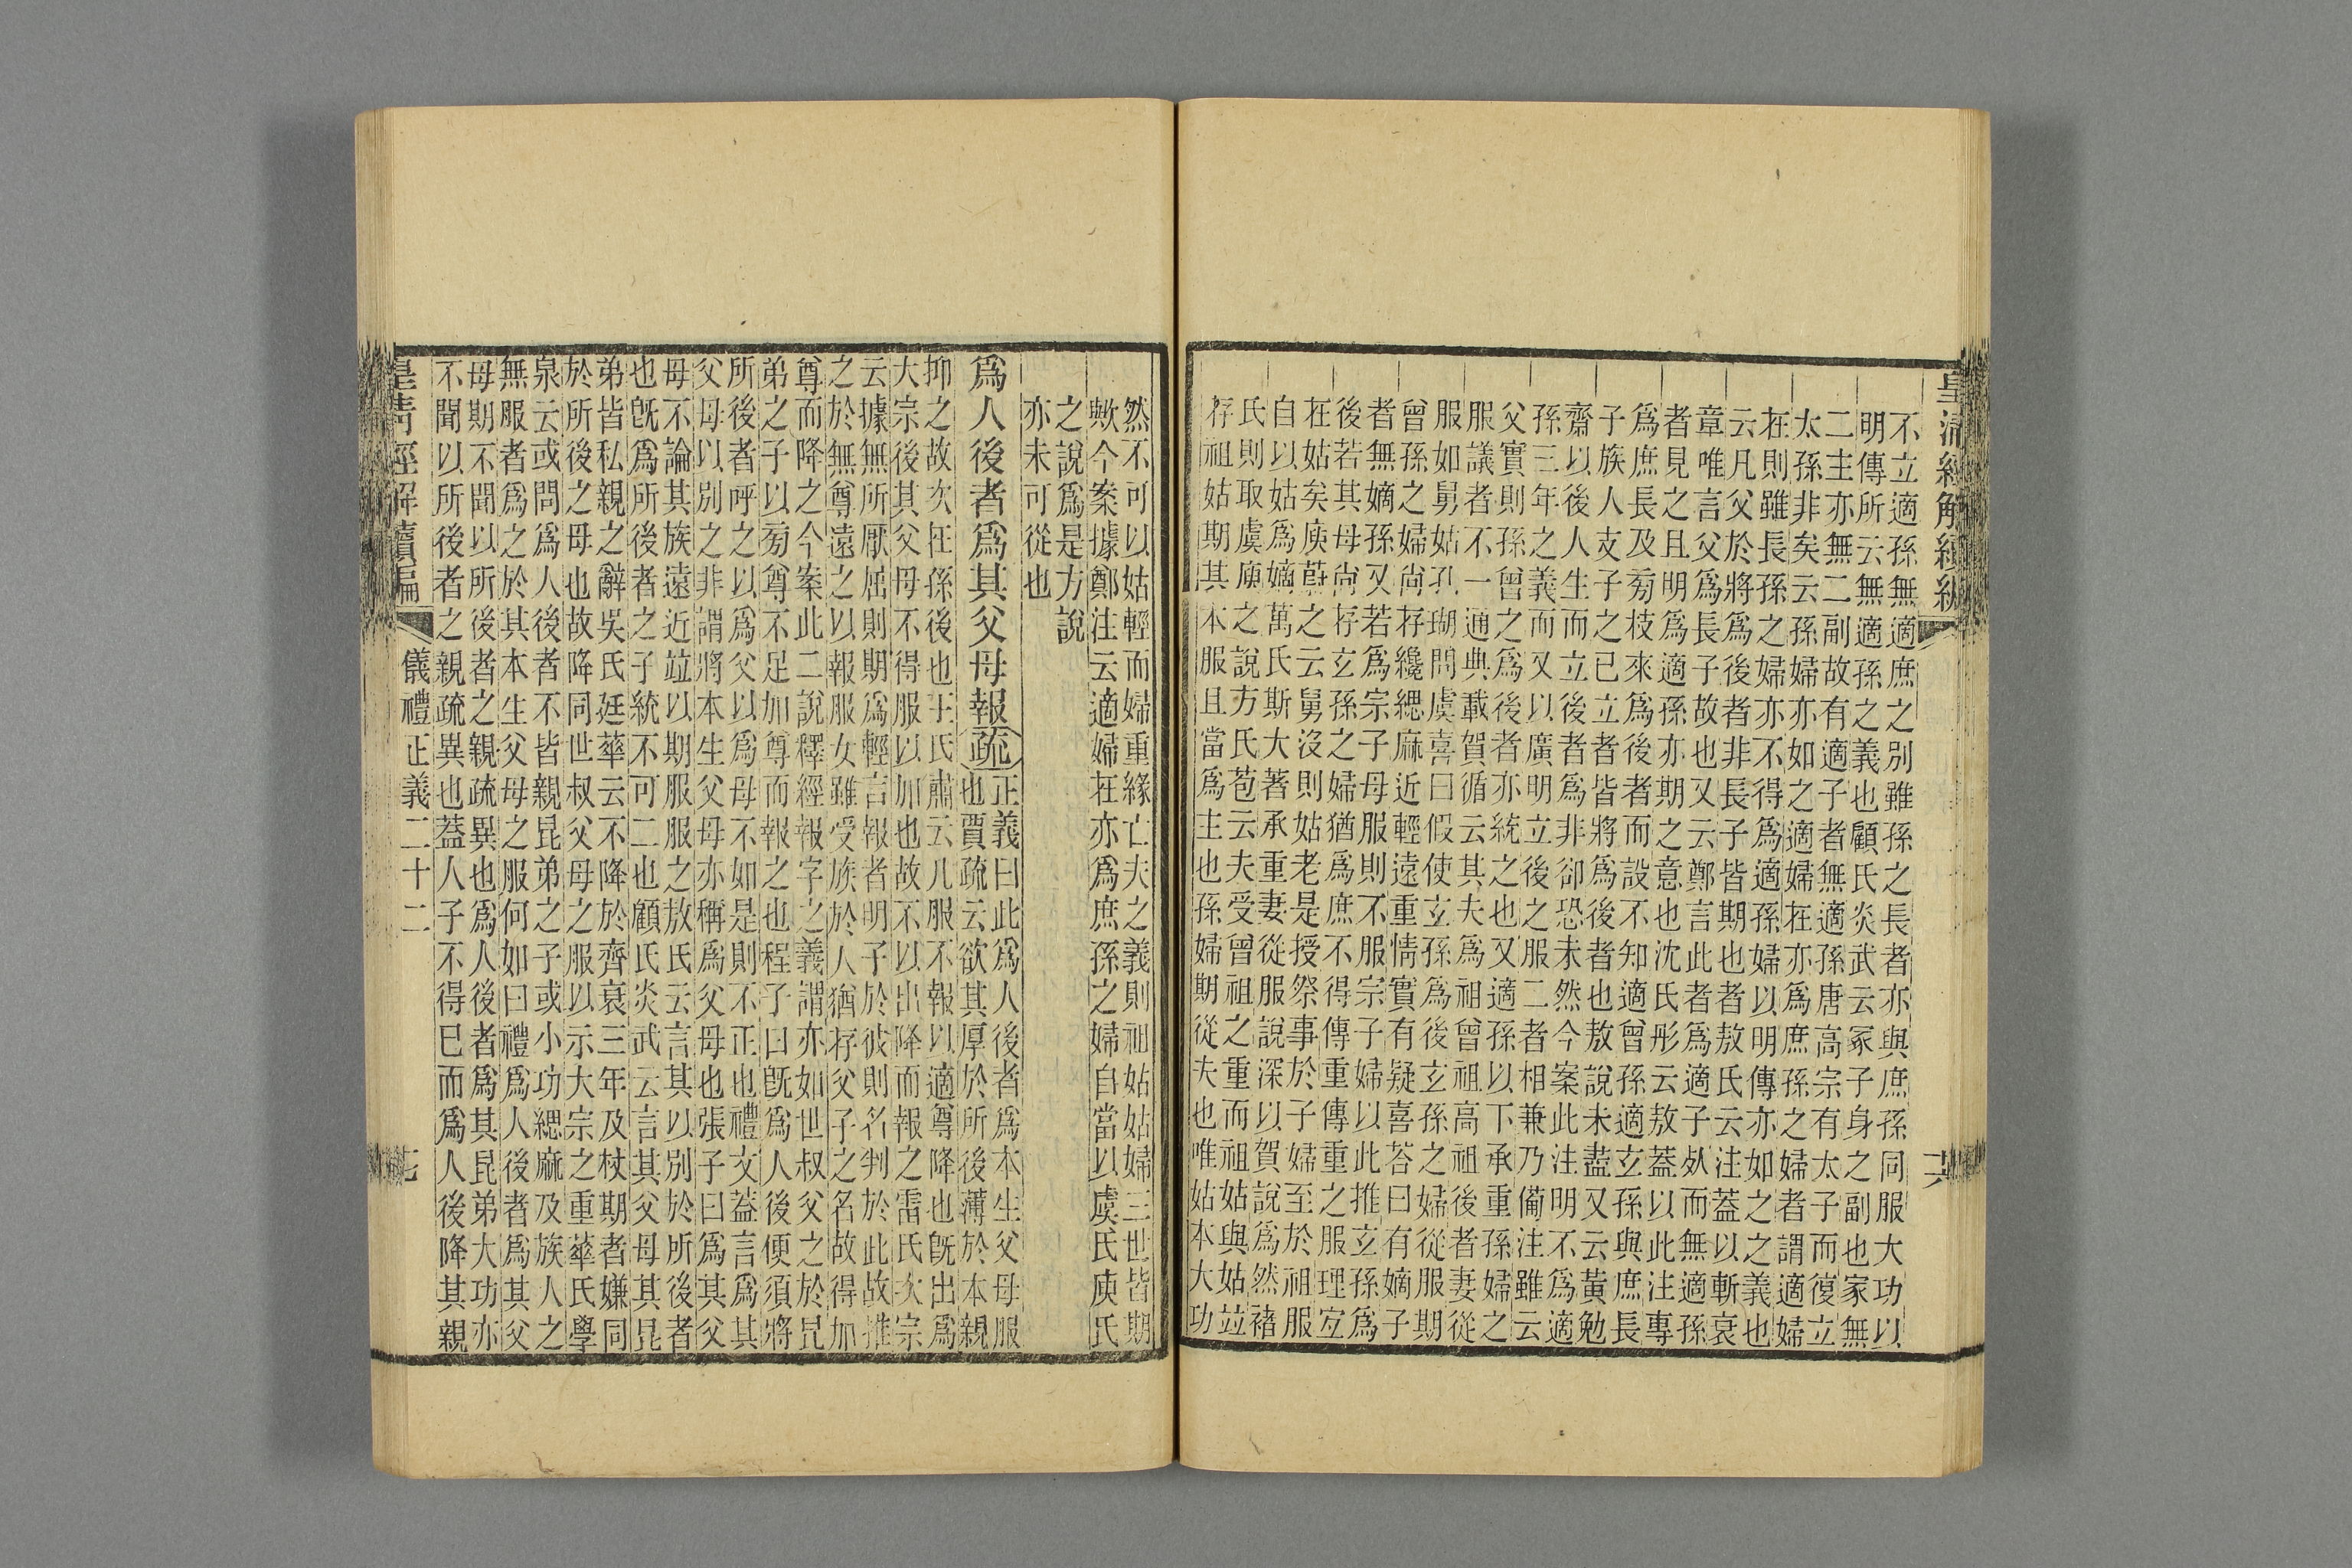 皇清經解續編
不立適孫無適庶之別雖孫之長者亦與庶孫同服大功以
明傳所云無適孫之義也顧氏炎武云冢子身之副也家無
二主亦無二副故有適子者無適孫唐高宗有太子而復立
太孫非矣云孫婦亦如之適婦在亦爲庶孫之婦者謂適婦
在則雖長孫之婦亦不得爲適孫婦以明傳亦如之之義也
云凡父於將爲後者非長子皆期也者敖氏云注蓋以斬衰
章唯言父爲長子故也又云鄭言此者爲適子死而無適孫
者見之且明爲適孫亦期之意也沈氏彤云敖蓋以此注專
爲庶長及旁枝來爲後者而設不知適曾孫適玄孫與庶長
子族人支子之已立者皆將爲後者也敖說未盡又云黃勉
齋以後人生而立後者爲非卻恐未然今案此注明不爲適
孫三年之義而又以廣明立後之服二者相兼乃備注雖云
父實則孫曾之爲後者亦統之也又適孫以下承重孫婦之
服議者不一通典載賀循云其夫爲祖曾祖高祖後者妻從
服如舅姑孔瑚問虞喜曰假使玄孫爲後玄孫之婦從服期
曾孫之婦尙存纔緦麻近輕遠重情實有疑喜荅曰有嫡子
者無嫡孫又若爲宗子母服則不服宗子婦以此推玄孫爲
後若其母尙存玄孫之婦猶爲庶不得傳重傳重之服理宜
在姑矣庾蔚之云舅沒則姑老是授祭事於子婦至於祖服
自以姑爲嫡萬氏斯大著承重妻從服說深以賀說爲然禇
氏則取虞庾之說方氏苞云夫受曾祖之重而祖姑與姑竝
存祖姑期其本服且當爲主也孫婦期從夫也唯姑本大功
然不可以姑輕而婦重緣亡夫之義則祖姑姑婦三世皆期
歟今案據鄭注云適婦在亦爲庶孫之婦自當以虞氏庾氏
之說爲是方說
亦未可從也
爲人後者爲其父母報疏正義曰此爲人後者爲本生父母服
也賈疏云欲其厚於所後薄於本親
抑之故次在孫後也王氏肅云凡服不報以適尊降也既出爲
大宗後其父母不得服以加也故不以出降而報之雷氏次宗
云據無所厭屈則期爲輕言報者明子於彼則名判於此故推
之於無尊遠之以報服女雖受族於人猶存父子之名故得加
尊而降之今案此二說釋經報字之義謂亦如世叔父之於昆
弟之子以旁尊不足加尊而報之也程子曰旣爲人後便須將
所後者呼之以爲父以爲母不如是則不正也禮文蓋言爲其
父母以別之非謂將本生父母亦稱爲父母也張子曰爲其父
母不論其族遠近竝以期服服之敖氏云言其以別於所後者
也旣爲所後者之子統不可二也顧氏炎武云言其父母其昆
弟皆私親之辭吳氏廷華云不降於齊衰三年及杖期者嫌同
於所後之母也故降同世叔父母之服以示大宗之重華氏學
泉云或問爲人後者不皆親昆弟之子或小功緦麻及族人之
無服者爲之於其本生父母之服何如曰禮爲人後者爲其父
母期不聞以所後者之親疏異也爲人後者爲其昆弟大功亦
不聞以所後者之親疏異也蓋人子不得已而爲人後降其親
皇清經解續編
儀禮正義二十二